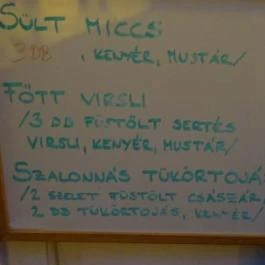 SÜLT MICCS
3 DB , KENYÉR, MUSTÁR/
FŐTT VIRSLI
/3 DB FÜSTÖLT SERTÉS
VIRSLI, KENYÉR, MUSTÁR/
SZALONNÁS TÜKÖRTOJÁ
/2 SZELET FÜSTÖLT CSÁSZÁR,
2 DB TÜKÖRTOJÁS, KENYÉR/